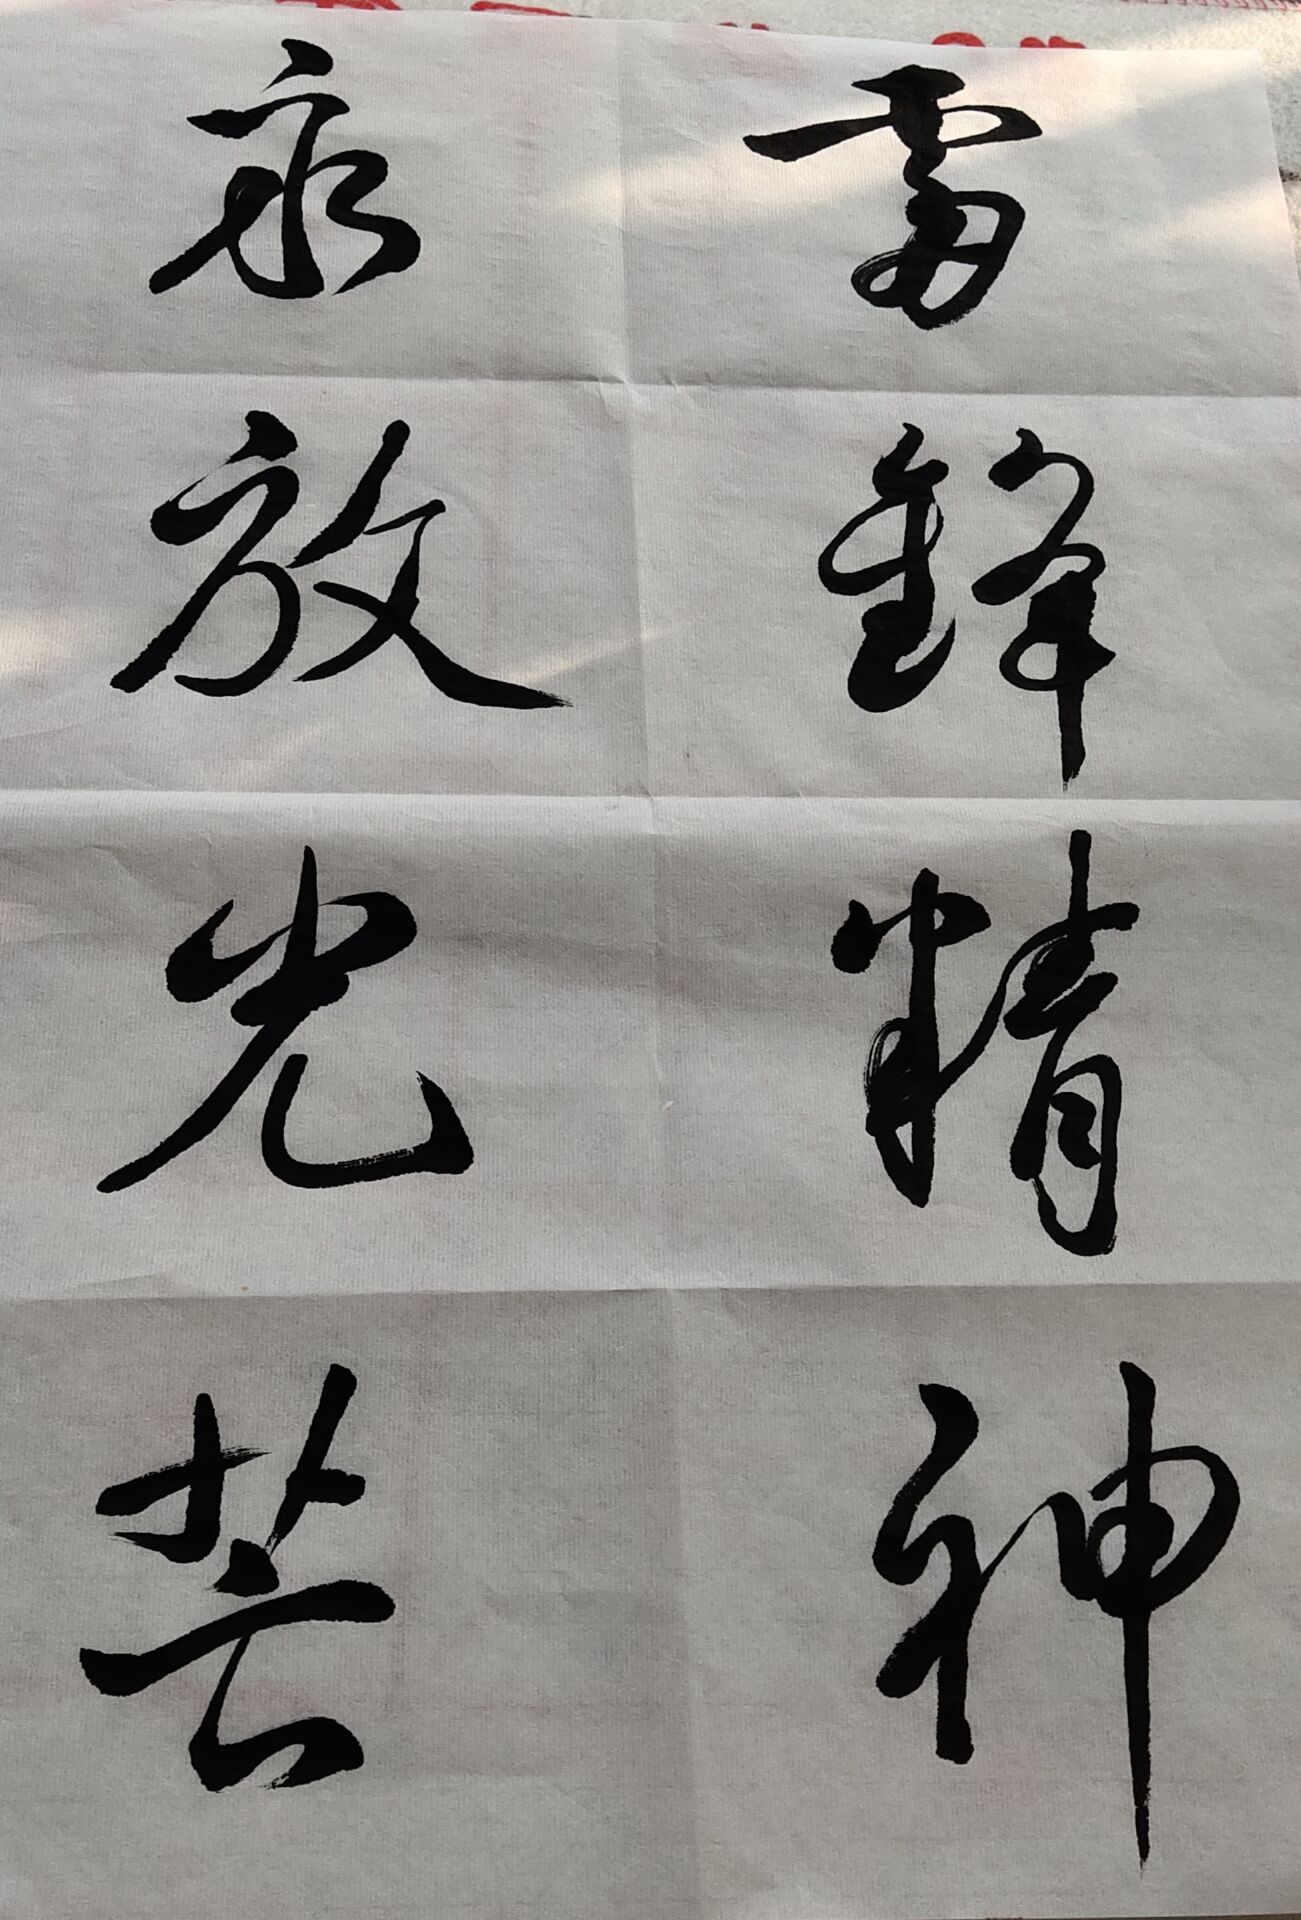 雷鋒精神
永放光芒